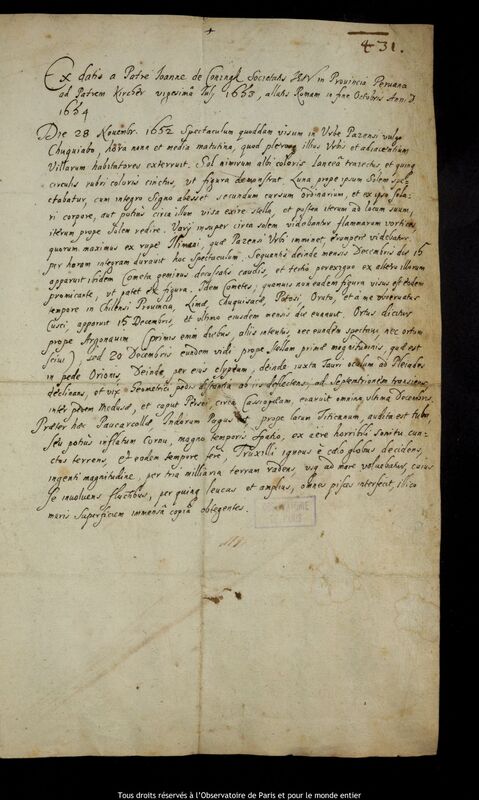 431.
Ex datis a Patre Ioanne de Coningk Societatis in Provincia Peruana
ad Patrem Kircher vigesimâ July 1653, allatis Romam in fine Octobris Anni
1654
Die 28 Nouembr. 1652 Spectaculum quoddam visum in Vrbe Pazensi vulgo
Chuquiabo, hora nona et media matutina, quod plerosque illius Vrbis et adiacentium
Villarum habitatores exterruit. Sol nimirum albi coloris lanceâ traiectus, et quinque
circulis rubri coloris cinctus, vt figura demonstrat. Luna prope ipsum Solem spec-
tabatur, cum integro Signo abesset secundum cursum ordinarium, et ex ipso sola-
ri corpore, aut potius circa illum visa exire stella, et postea iterum ad locum suum,
iterum prope Solem redire. Varij insuper circa solem videbantur flammarum vortices,
quorum maximus ex rupe Illimani, quæ Pazensi Vrbi imminet erumpere videbatur.
per horam integram durauit hoc Spectaculum. Sequentis deinde mensis Decembris die 15
apparuit ibidem Cometa geminus deorsatis caudis, et tertia ex altero illorum
promicante, vt patet ex figura. Idem Cometes, quamuis non eadem figura visus est eodem
tempore in Chilensi Prouincia, Limæ, Chuquisacæ, Potosi, Oruro, et a me obseruatus
Cusci, apparuit 15 Decembris, et vltimo eiusdem mensis die euanuit. Ortus dicitur
prope Argonauim (primis enim diebus, aliis intentus, nec eundem spectaui, nec ortum
sciui), sed 20 Decembris eundem vidi prope stellam primæ magnitudinis, quæ est
in pede Orionis, Deinde per eius clypeum, deinde iuxta Tauri oculum ad Pleiades
declinans, et vix Geometrici pedis distantia ab iis deflectens, ad Septentrionem transiens,
inter pedem Medusæ, et caput Persei circa Cassiopæam, euanuit omnino vltima Decembris.
Præter hæc Paucarcollæ Indorum Pagus est prope lacum Titicanum, audita est tuba,
seu potius inflatum Cornu, magno temporis spatio, ex aere horribili sonitu cun-
ctos terrens, et eodem tempore fere Truxilli igneus è cælo globus decidens,
ingenti magnitudine, per tria milliaria terram radens vsque ad mare voluebatur, cuius
se inuoluens fluctibus, per quinque leucas et amplius, omnes pisces interfecit, illico
maris superficiem immensâ copiâ obtegentes.
OBSERVATOIRE
DE PARIS
Tous droits réservés à l'Observatoire de Paris et pour le monde entier